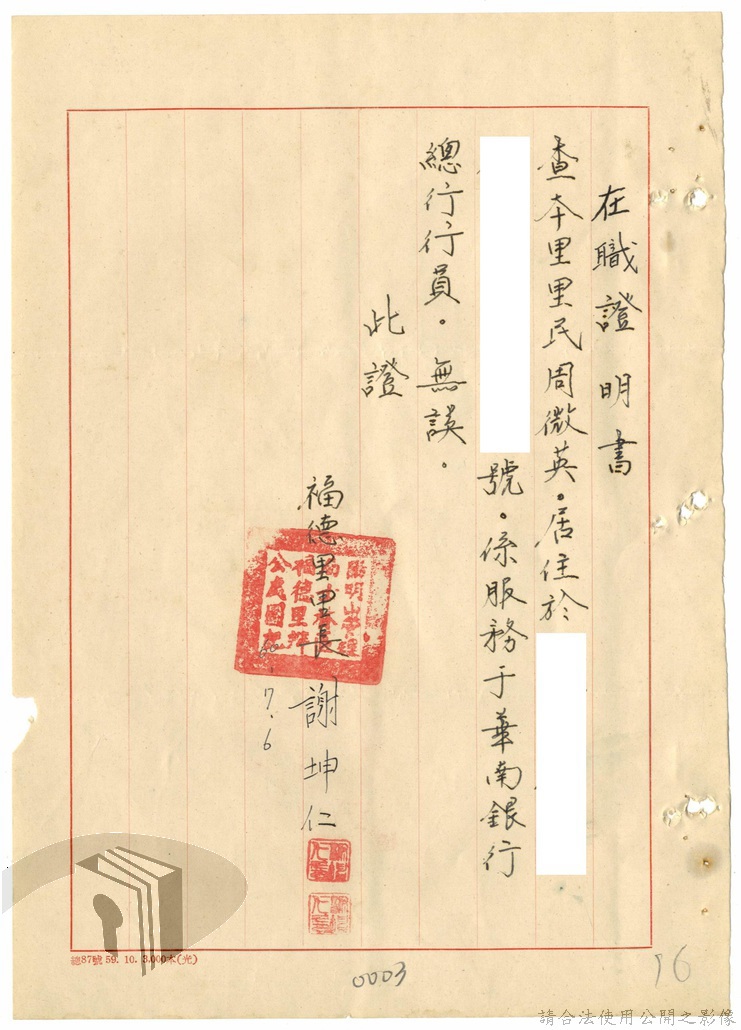 在職證明書
查本里里民周微英。居住於
號。係服務于華南銀行
總行行員。無誤。
此證
福德里里長 謝坤仁
陽明山管理
福德里辦
公處圖記
7.6
總87號 59. 10. 3,000本(光)
0003
16
請合法使用公開之影像